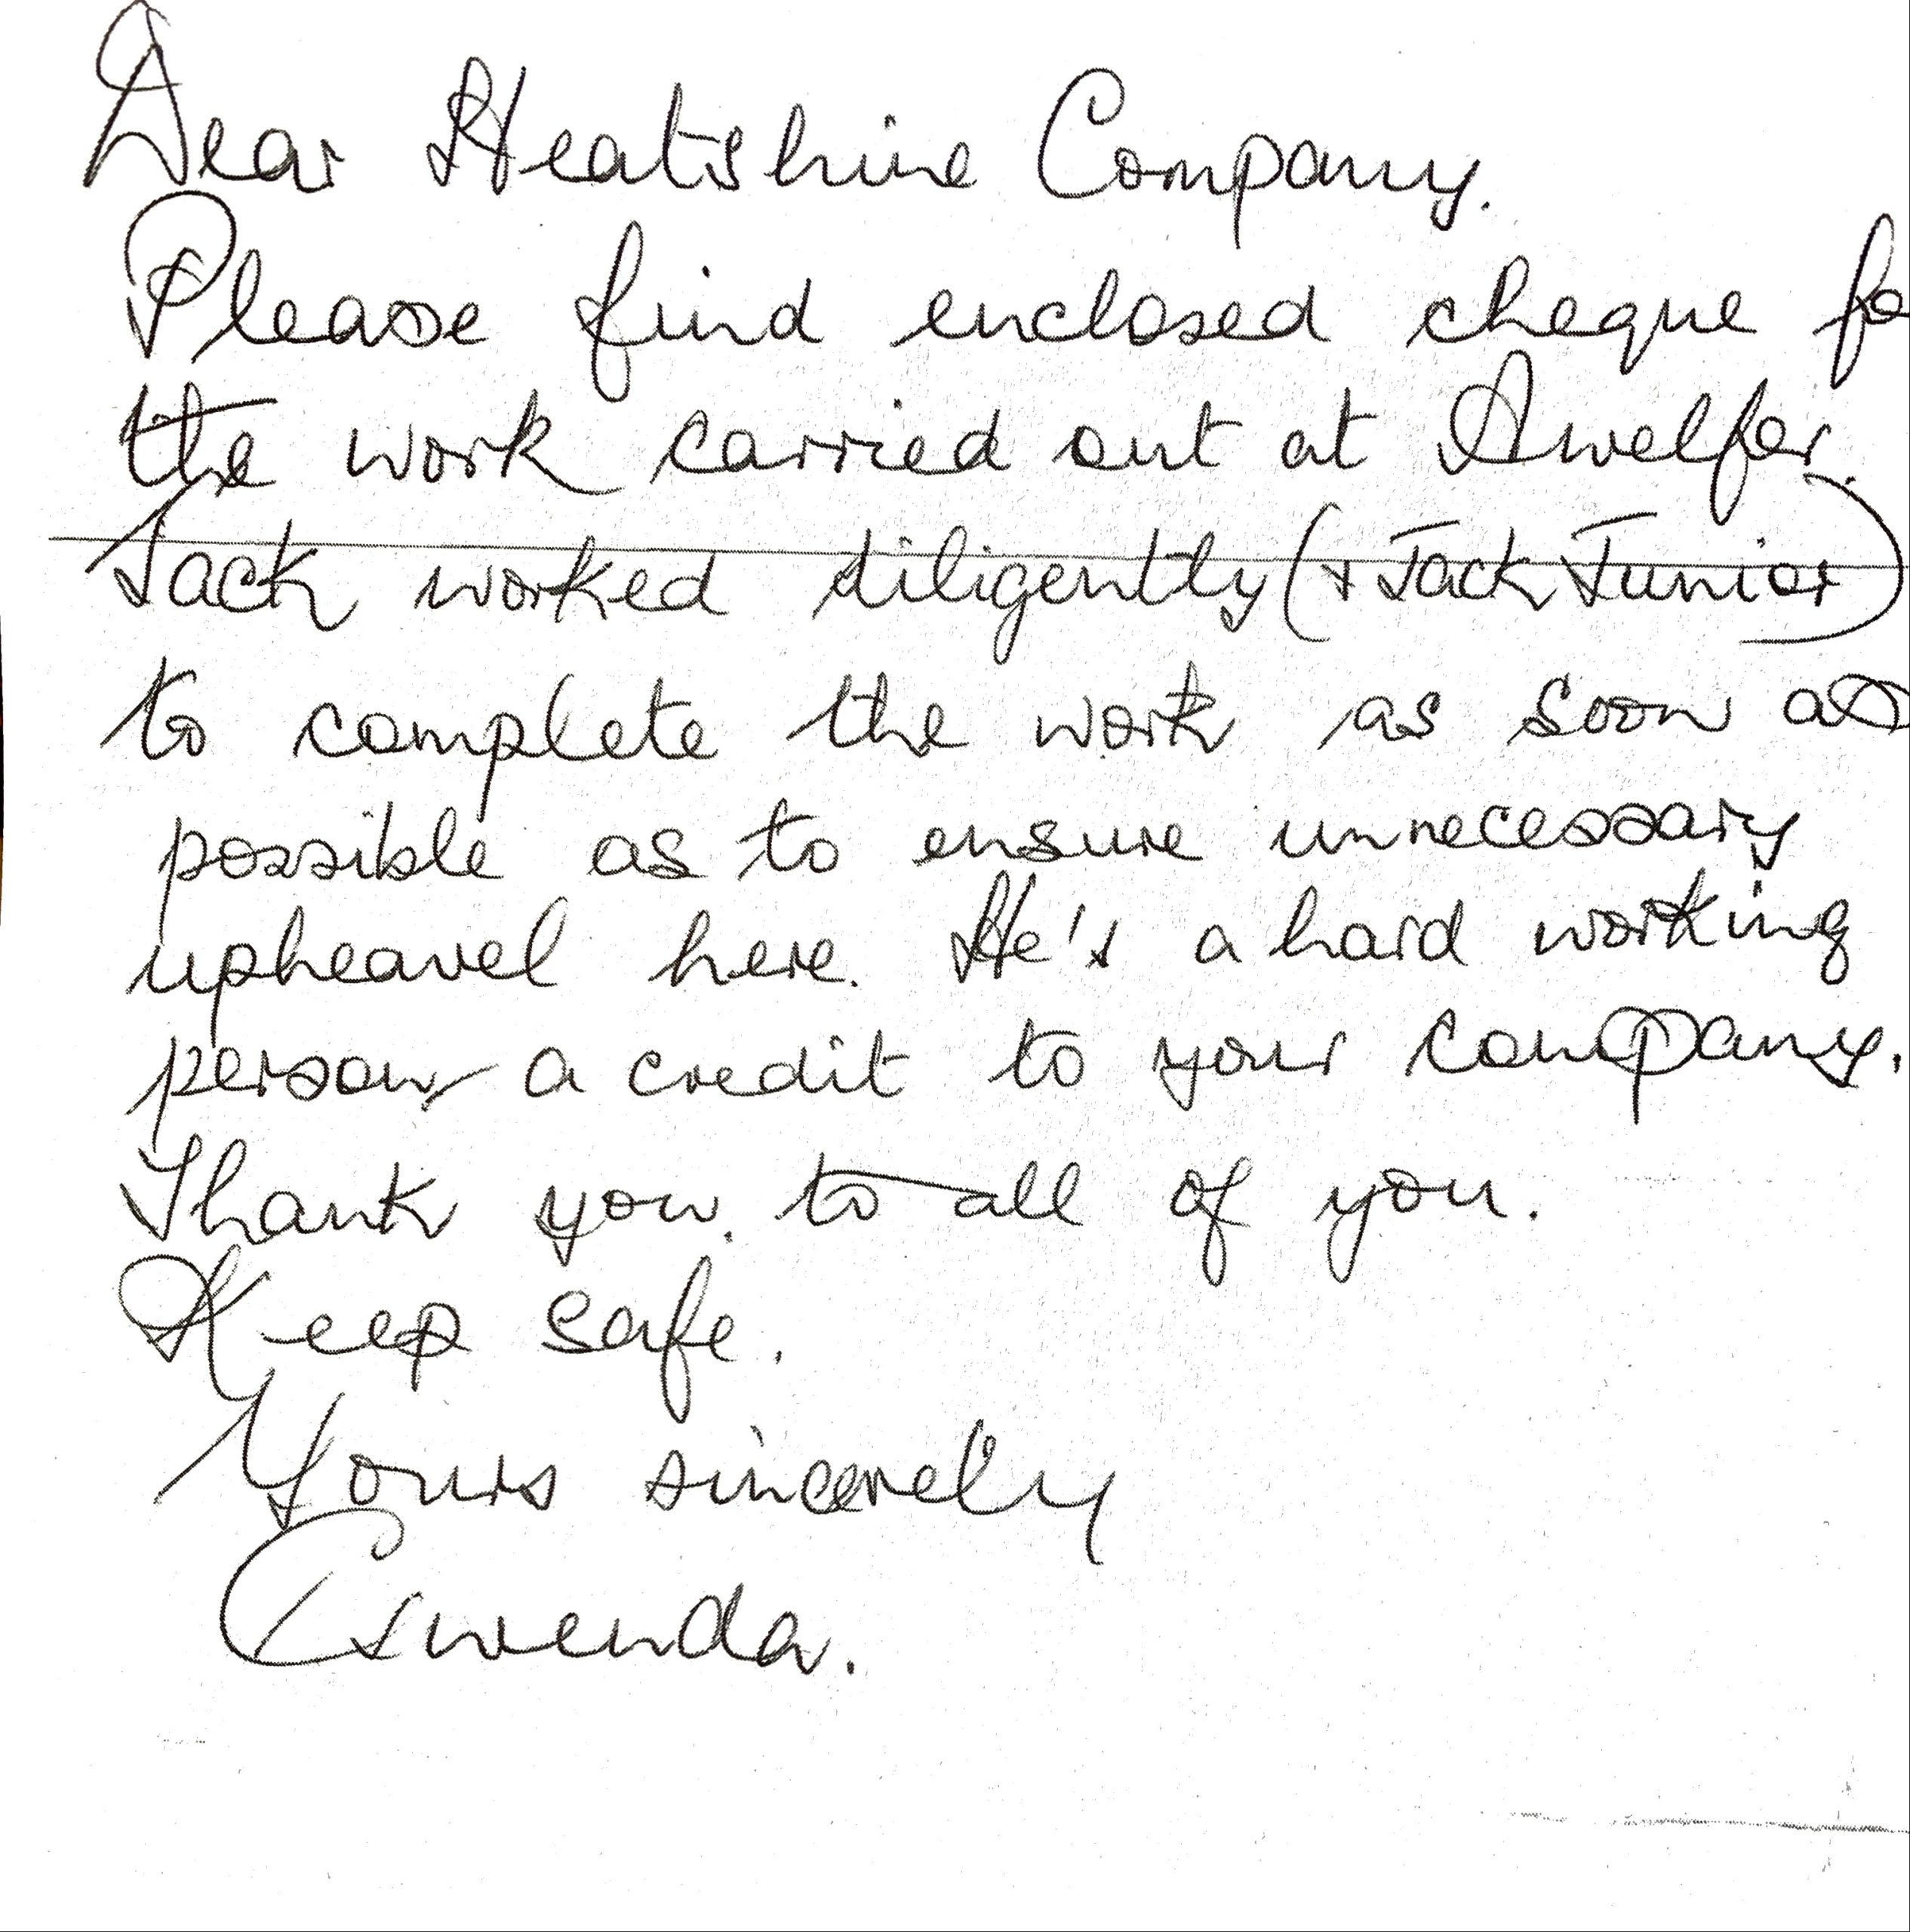 Dear Heatshine Company.
Please find enclosed cheque fo
the work carried out at Awelfor.
Jack worked diligently (+ Jack Junior)
to complete the work as soon as
possible as to ensure unnecessary
upheavel here. He's a hard working
person, a credit to your company.
Thank you. to all of you.
Keep safe.
Yours sincerely
Gwenda.